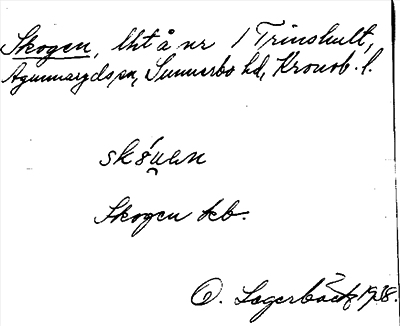 Skogen, lht å nr 1 Trinshult,
Agunnaryds sn, Sunnerbo hd, Kronob. l.
Skogen kb.
O. Lagerbäck 1938.